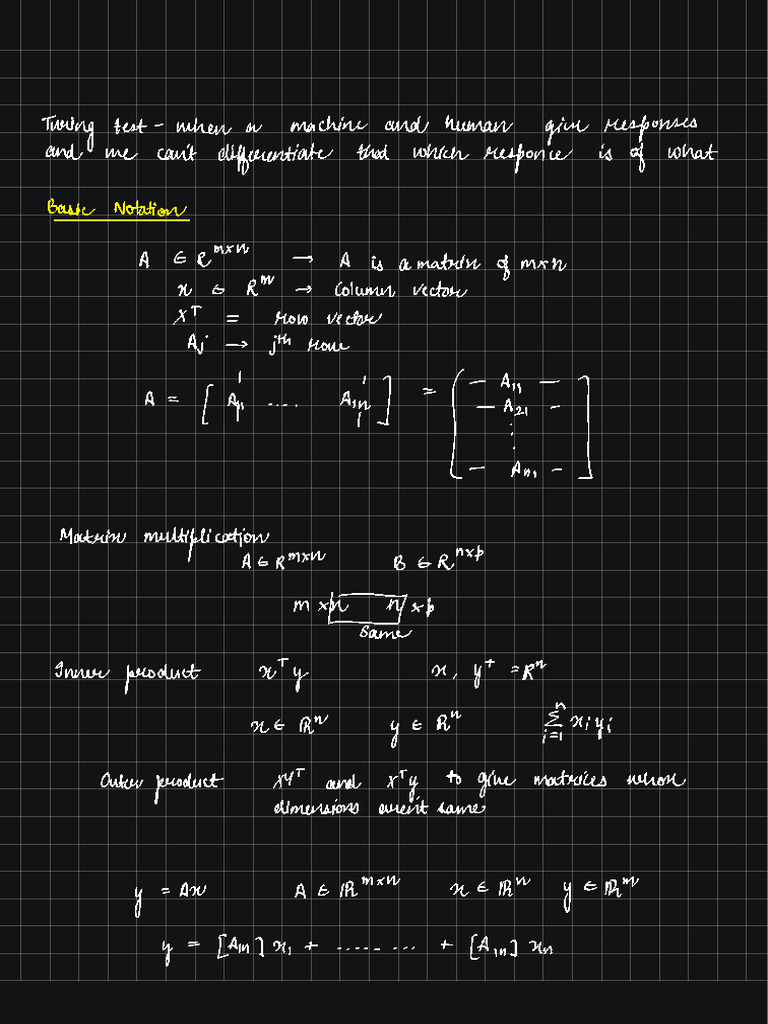 Turing test - when a machine and human give responses
and we can't differentiate that which responce is of what
Basic Notation
A ∈ R^{m×n} → A is a matrix of m×n
x ∈ R^m → Column vector
X^T = row vector
A_j → j^{th} row
A = [ A_{11} .... A_{1n} ] = [ — A_{11} — 
— A_{21} -
⋮
— A_{n1} - ]
Matrix multiplication
A ∈ R^{m×n} B ∈ R^{n×p}
m × n n × p
same
Inner product x^T y x, y^T = R^n
x ∈ R^n y ∈ R^n \sum_{i=1}^{n} x_i y_i
Outer product XY^T and X^T y to give matrices whose
dimensions aren't same
y = Ax A ∈ R^{m×n} x ∈ R^n y ∈ R^m
y = [A_{1n}] x_1 + ........ + [A_{1n}] x_n